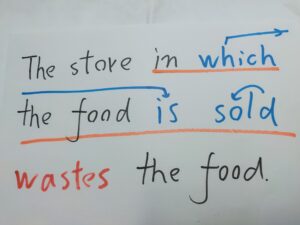 The store in which
the food is sold
wastes the food.